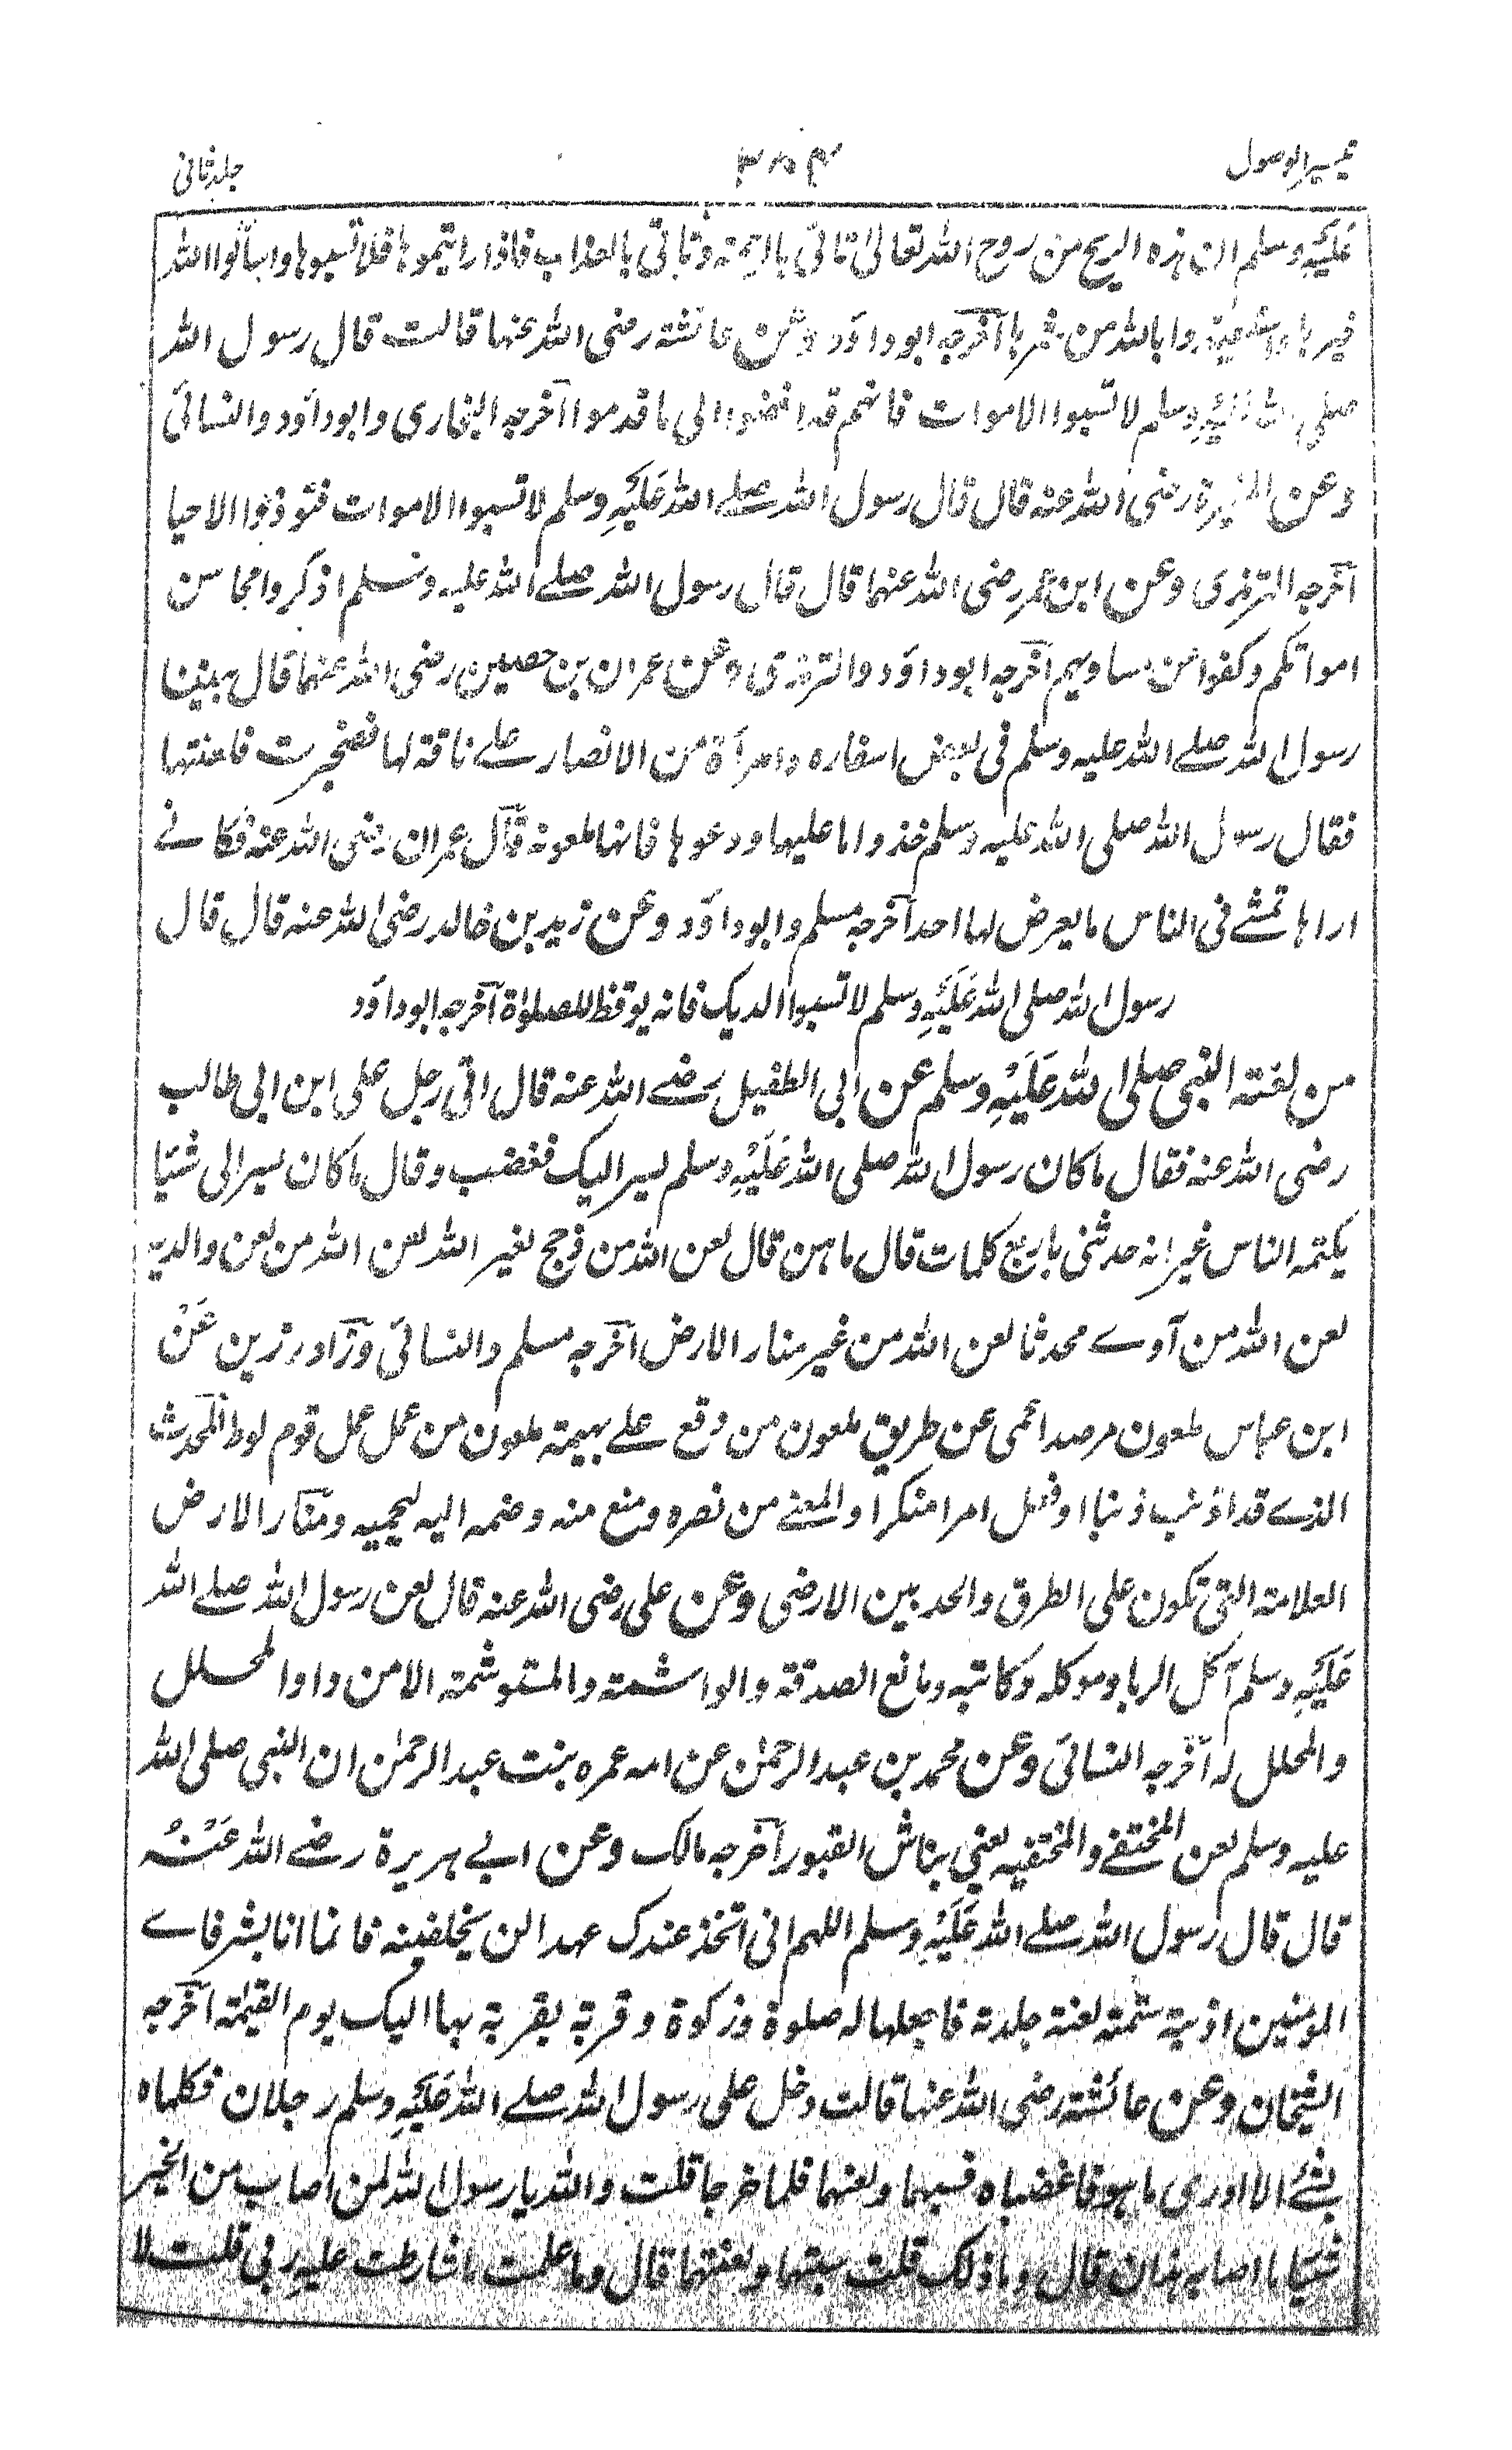 تیسیر الوصول ۳۵۴ جلد ثانی
عَلَيْهِ وسلم ان هذه الریح من روح الله تعالیٰ تاتی بالرحمة وتاتی بالعذاب فاذا رایتموها فلا تسبوها واسألوا الله
خیرها واستعیذوا بالله من شرها اخرجه ابو داؤد وعن عائشة رضی الله عنها قالت قال رسول الله
صلی الله عَلَيْهِ وسلم لا تسبوا الاموات فانهم قد افضوا الی ما قدموا اخرجه البخاری وابو داؤد والنسائی
وعن المغیرة رضی الله عنه قال قال رسول الله صلے الله عَلَيْهِ وسلم لا تسبوا الاموات فتؤذوا الاحیا
اخرجه الترمذی وعن ابن عمر رضی الله عنهما قال قال رسول الله صلے الله علیه وسلم اذکروا محاسن
امواتکم وکفوا عن مساویهم اخرجه ابو داؤد والترمذی وعن عمران بن حصین رضی الله عنهما قال بینا
رسول الله صلے الله علیه وسلم فی بعض اسفاره وامرأة من الانصار علے ناقة لها فضجرت فلعنتها
فقال رسول الله صلی الله علیه وسلم خذوا ما علیها ودعوها فانها ملعونة قال عمران رضی الله عنه فکانے
اراها تمشے فی الناس ما یعرض لها احد اخرجه مسلم وابو داؤد وعن زید بن خالد رضی الله عنه قال قال
رسول الله صلی الله عَلَيْهِ وسلم لا تسبوا الدیک فانه یوقظ للصلوٰة اخرجه ابو داؤد
من لعنة النبی صلی الله عَلَيْهِ وسلم عن ابی الطفیل رضے الله عنه قال اتی رجل علی ابن ابی طالب
رضی الله عنه فقال ما کان رسول الله صلی الله عَلَيْهِ وسلم یسر الیک فغضب وقال ما کان یسر الی شیئا
یکتمه الناس غیر انه حدثنی باربع کلمات قال ما هن قال لعن الله من ذبح لغیر الله لعن الله من لعن والدیه
لعن الله من آوے محدثا لعن الله من غیر منار الارض اخرجه مسلم والنسائی وزاد رزین عَنْ
ابن عباس ملعون من صد اعمی عن طریق ملعون من وقع علے بهیمة ملعون من عمل عمل قوم لوط المحدث
الذے قد اذنب ذنبا او فعل امرا منکرا والمعنے من نصره ومنع منه وضمه الیه لیحمیه ومنار الارض
العلامة التی تکون علی الطرق والحد بین الارضی وعن علی رضی الله عنه قال لعن رسول الله صلے الله
عَلَيْهِ وسلم آکل الربا وموکله وکاتبه ومانع الصدقة والواشمة والمستوشمة الا من داوا لمحلل
والمحلل له اخرجه النسائی وعن محمد بن عبد الرحمٰن عن امه عمره بنت عبد الرحمٰن ان النبی صلی الله
علیه وسلم لعن المختفے والمختفیه یعنی بناش القبور اخرجه مالک وعن ابے هریرة رضے الله عَنْهُ
قال قال رسول الله صلے الله عَلَيْهِ وسلم اللهم انی اتخذ عندک عهدا لن یخلفینه فانما انا بشر فاے
المومنین اذیته شتمته لعنته جلدته فاجعلها له صلوة وزکوة وقربة یقربه بها الیک یوم القیٰمة اخرجه
الشیخان وعن عائشة رضی الله عنها قالت دخل علی رسول الله صلے الله عَلَيْهِ وسلم رجلان فکلماه
بشئے لا ادری ما هو فاغضباه فسبهما ولعنهما فلما خرجا قلت والله یا رسول الله لمن اصاب من الخیر
شیئا ما اصابه هذان قال وما ذلک قلت سبتهما ولعنتهما قال وما علمت ما شارطت علیه ربی قلت لا